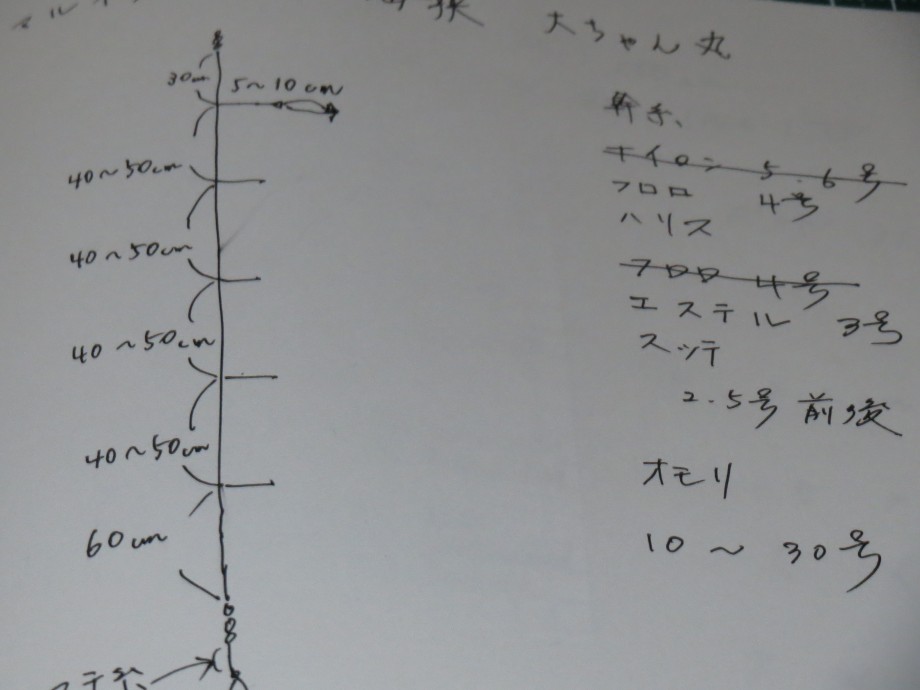 大ちゃん丸
30cm
5~10cm
40~50cm
40~50cm
40~50cm
40~50cm
60cm
幹糸、
ナイロン 5.6号
フロロ 4号
ハリス
フロロ 4号
エステル 3号
スッテ
2.5号 前後
オモリ
10~30号
ステ糸